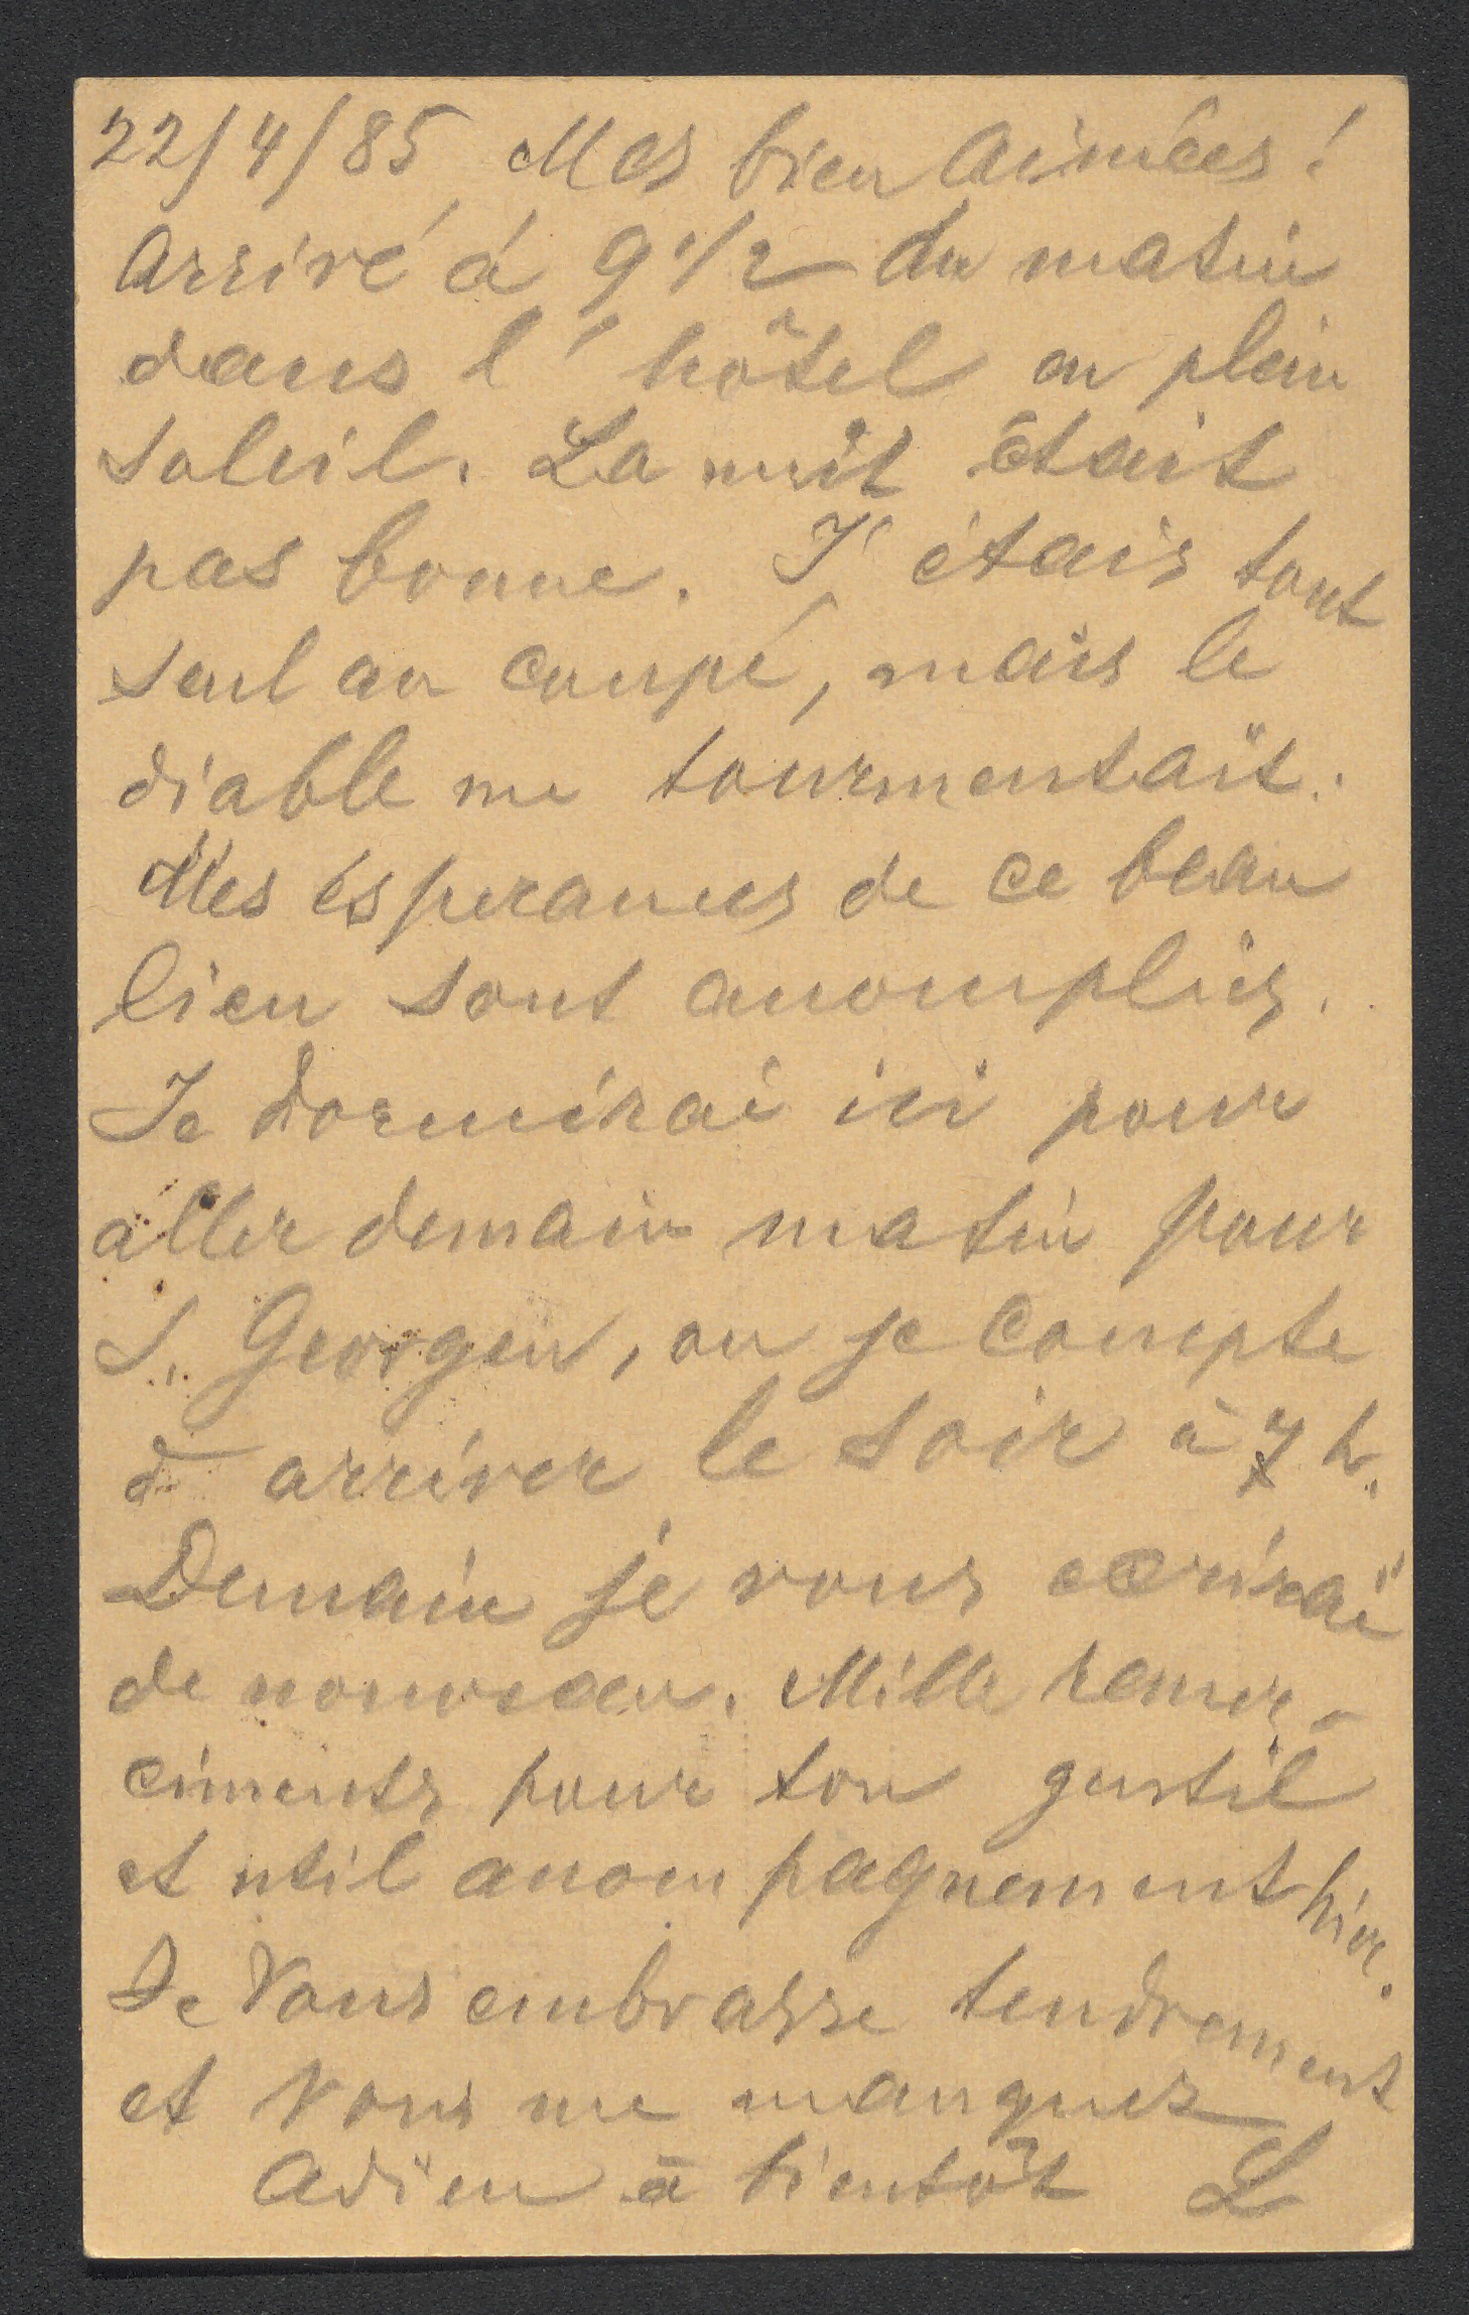 22/4/85 Mes bien aimées!
Arrivé á 9 1/2 du matin
dans l' hôtel en plein
soleil. La nuit était
pas bonne. J' étais tout
seul au coupé, mais le
diable me tourmentait.
Mes ésperances de ce beau
lieu sont accomplies.
Je dormirai ici pour
aller demain matin pour
S. Georgen, ou je compte
à arriver le soir à 7 h.
Demain je vous ecrirai
de nouveau. Mille remer-
ciments pour ton gentil
et util accompagnement
Je Vous embrasse tendrement
et Vous me manquez
Adieu à bientôt L